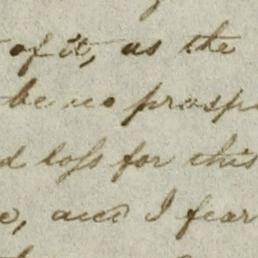 of it, as the
be no prospe
d loss for this
e, and I fear